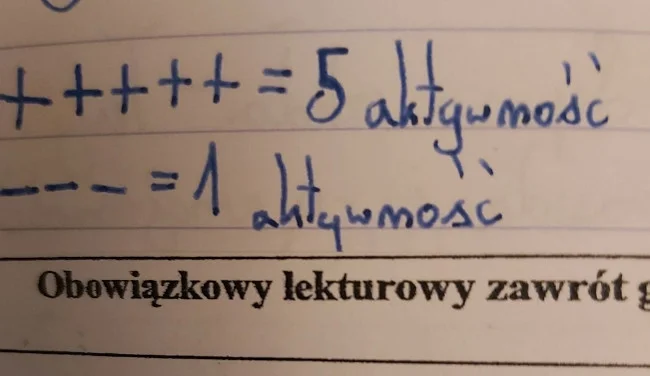 +++++ = 5 aktywność
--- = 1 aktywność
Obowiązkowy lekturowy zawrót